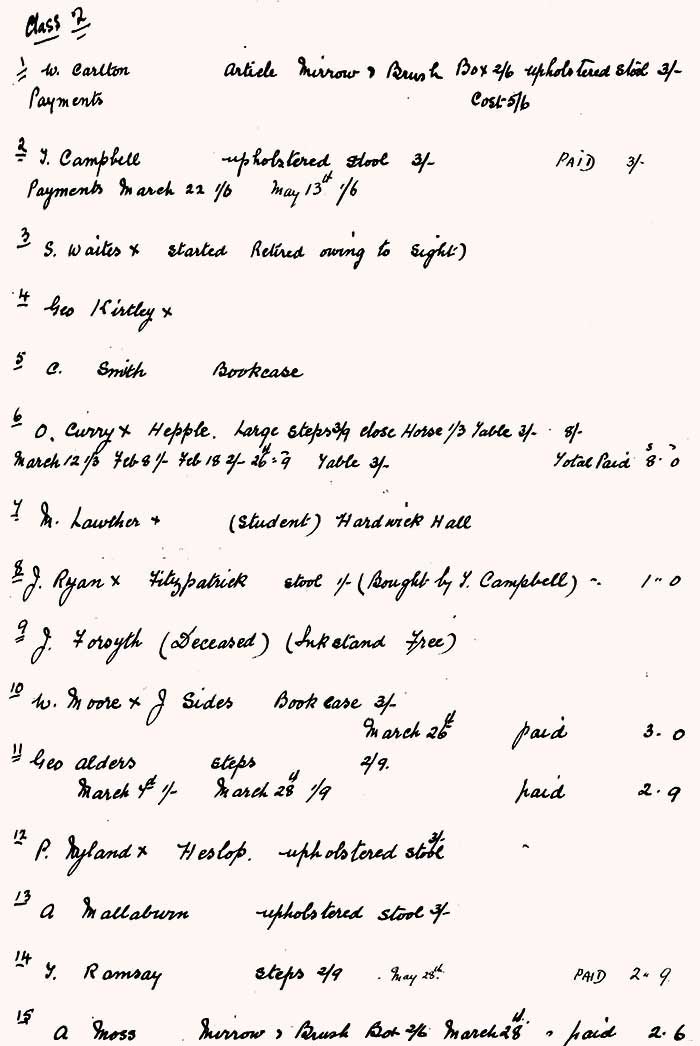 Class 2
1 W. Carlton Article Mirrow & Brush Box 2/6 upholstered stool 3/-
Payments Cost 5/6
2 T. Campbell upholstered stool 3/- PAID 3/-
Payments March 22 1/6 May 13th 1/6
3 S. Waites x started Retired owing to sight)
4 Geo Kirtley x
5 C. Smith Bookcase
6 O. Curry x Hepple. Large steps 3/9 close Horse 1/3 Table 3/- 8/-
March 12 1/3 Feb 8 1/- Feb 18 2/- 26th -9 Table 3/- Total Paid 8s. 0
7 M. Lawther x (Student) Hardwick Hall
8 J. Ryan x Fitzpatrick stool 1/- (Bought by T. Campbell) 1 " 0
9 J. Forsyth (Deceased) (Inkstand Free)
10 W. Moore x J Sides Bookcase 3/-
March 26th paid 3. 0
11 Geo alders steps 2/9.
March 4th 1/- March 28th 1/9 paid 2. 9
12 P. Nyland x Heslop. upholstered stool 3/-
13 A Mallaburn upholstered stool 3/-
14 T. Ramsay steps 2/9 May 28th. PAID 2 " 9
15 A Moss Mirrow & Brush Box 2/6 March 28th " paid 2. 6